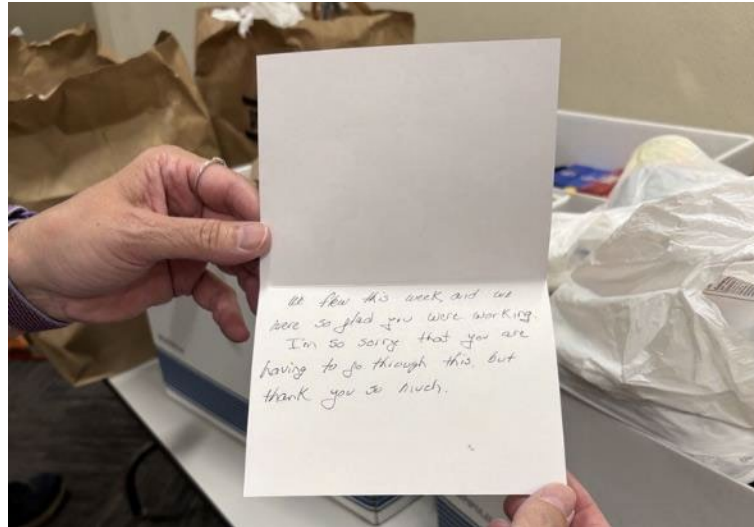 We flew this week, and we
were so glad you were working.
I'm so sorry that you are
having to go through this, but
thank you so much.